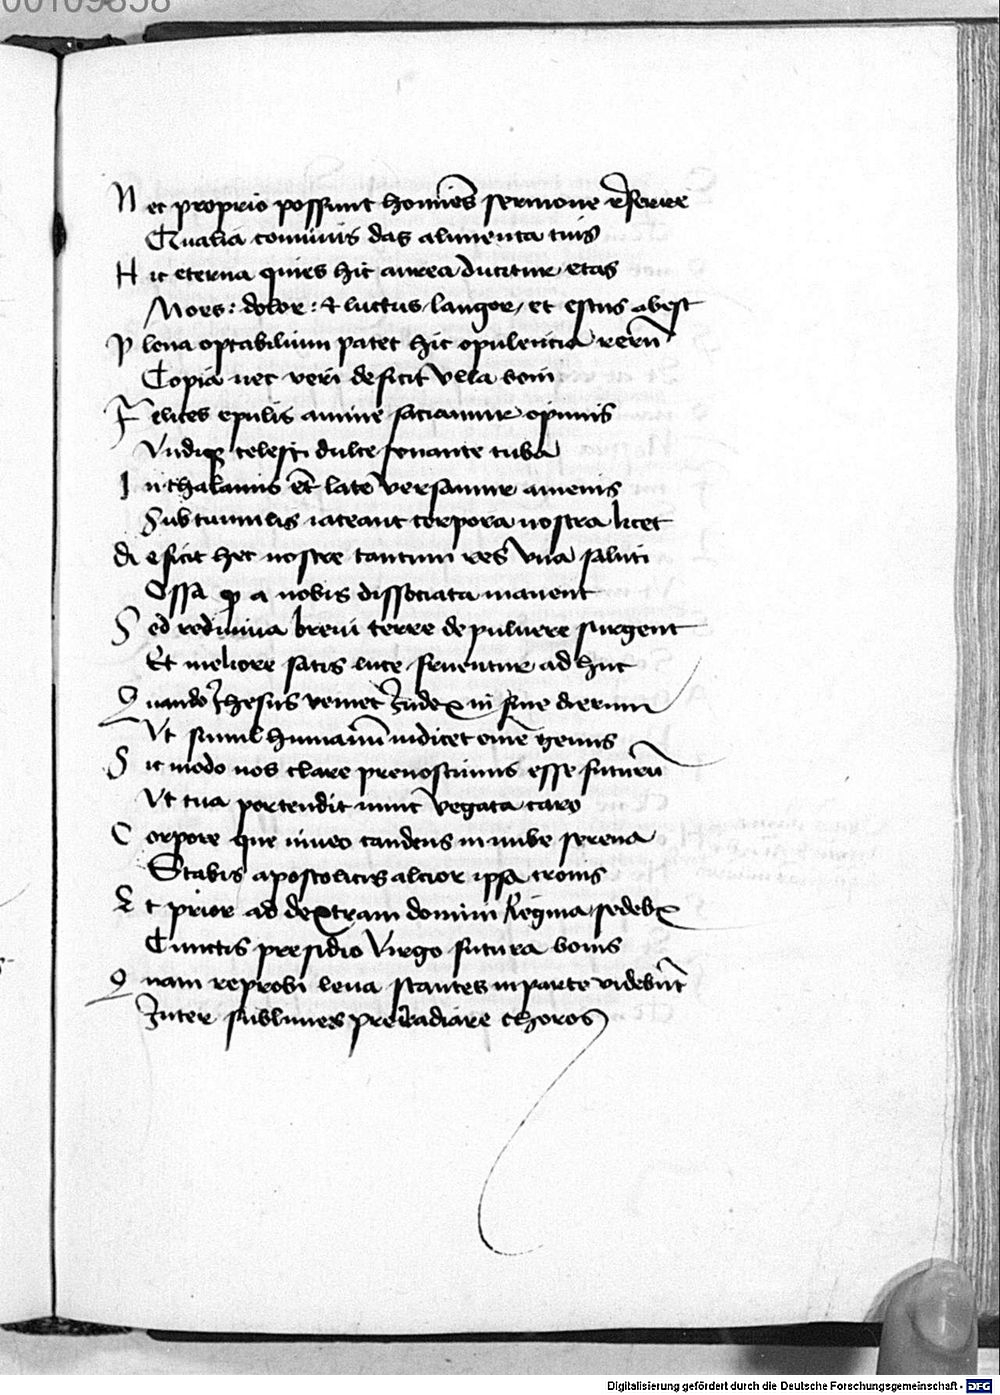 00109858
Nec proprio possunt homines sermone referre
Qualia conuiuis das alimenta tuis
Hic eterna quies hic aurea ducitur etas
Mors: dolor: & luctus, langor, et estus abest
Plena optabilium patet hic opulentia rerum
Copia nec veri deficit vlla boni
Felices epulis anime saciamur opimis
Vndiqꝫ celesti dulce sonante tuba
In thalamis et late versamur amenis
Sub tumulis iaceant corpora nostra licet
deficit hec nostre tantum res vna saluti
Ossa ꝙ a nobis dissociata manent
Sed rediuiua breui terre de puluere surgent
Et meliore satis luce fruentur ad huc
Quando Ihesus veniet Iudex in fine dierum
Vt simul humanum iudicet omne genus
Sic modo nos clare prenoscimus esse futurum
Vt tua portendit nunc vegata caro
Corpore que niueo candens in nube serena
Stabis apostolicis alcior ipsa tronis
Et prior ad dextram domini Regina sedebis
Cunctis presidio Virgo futura bonis
Quam reprobi leua stantes in parte videbunt
Inter sublimes preradiare choros
Digitalisierung gefördert durch die Deutsche Forschungsgemeinschaft - DFG